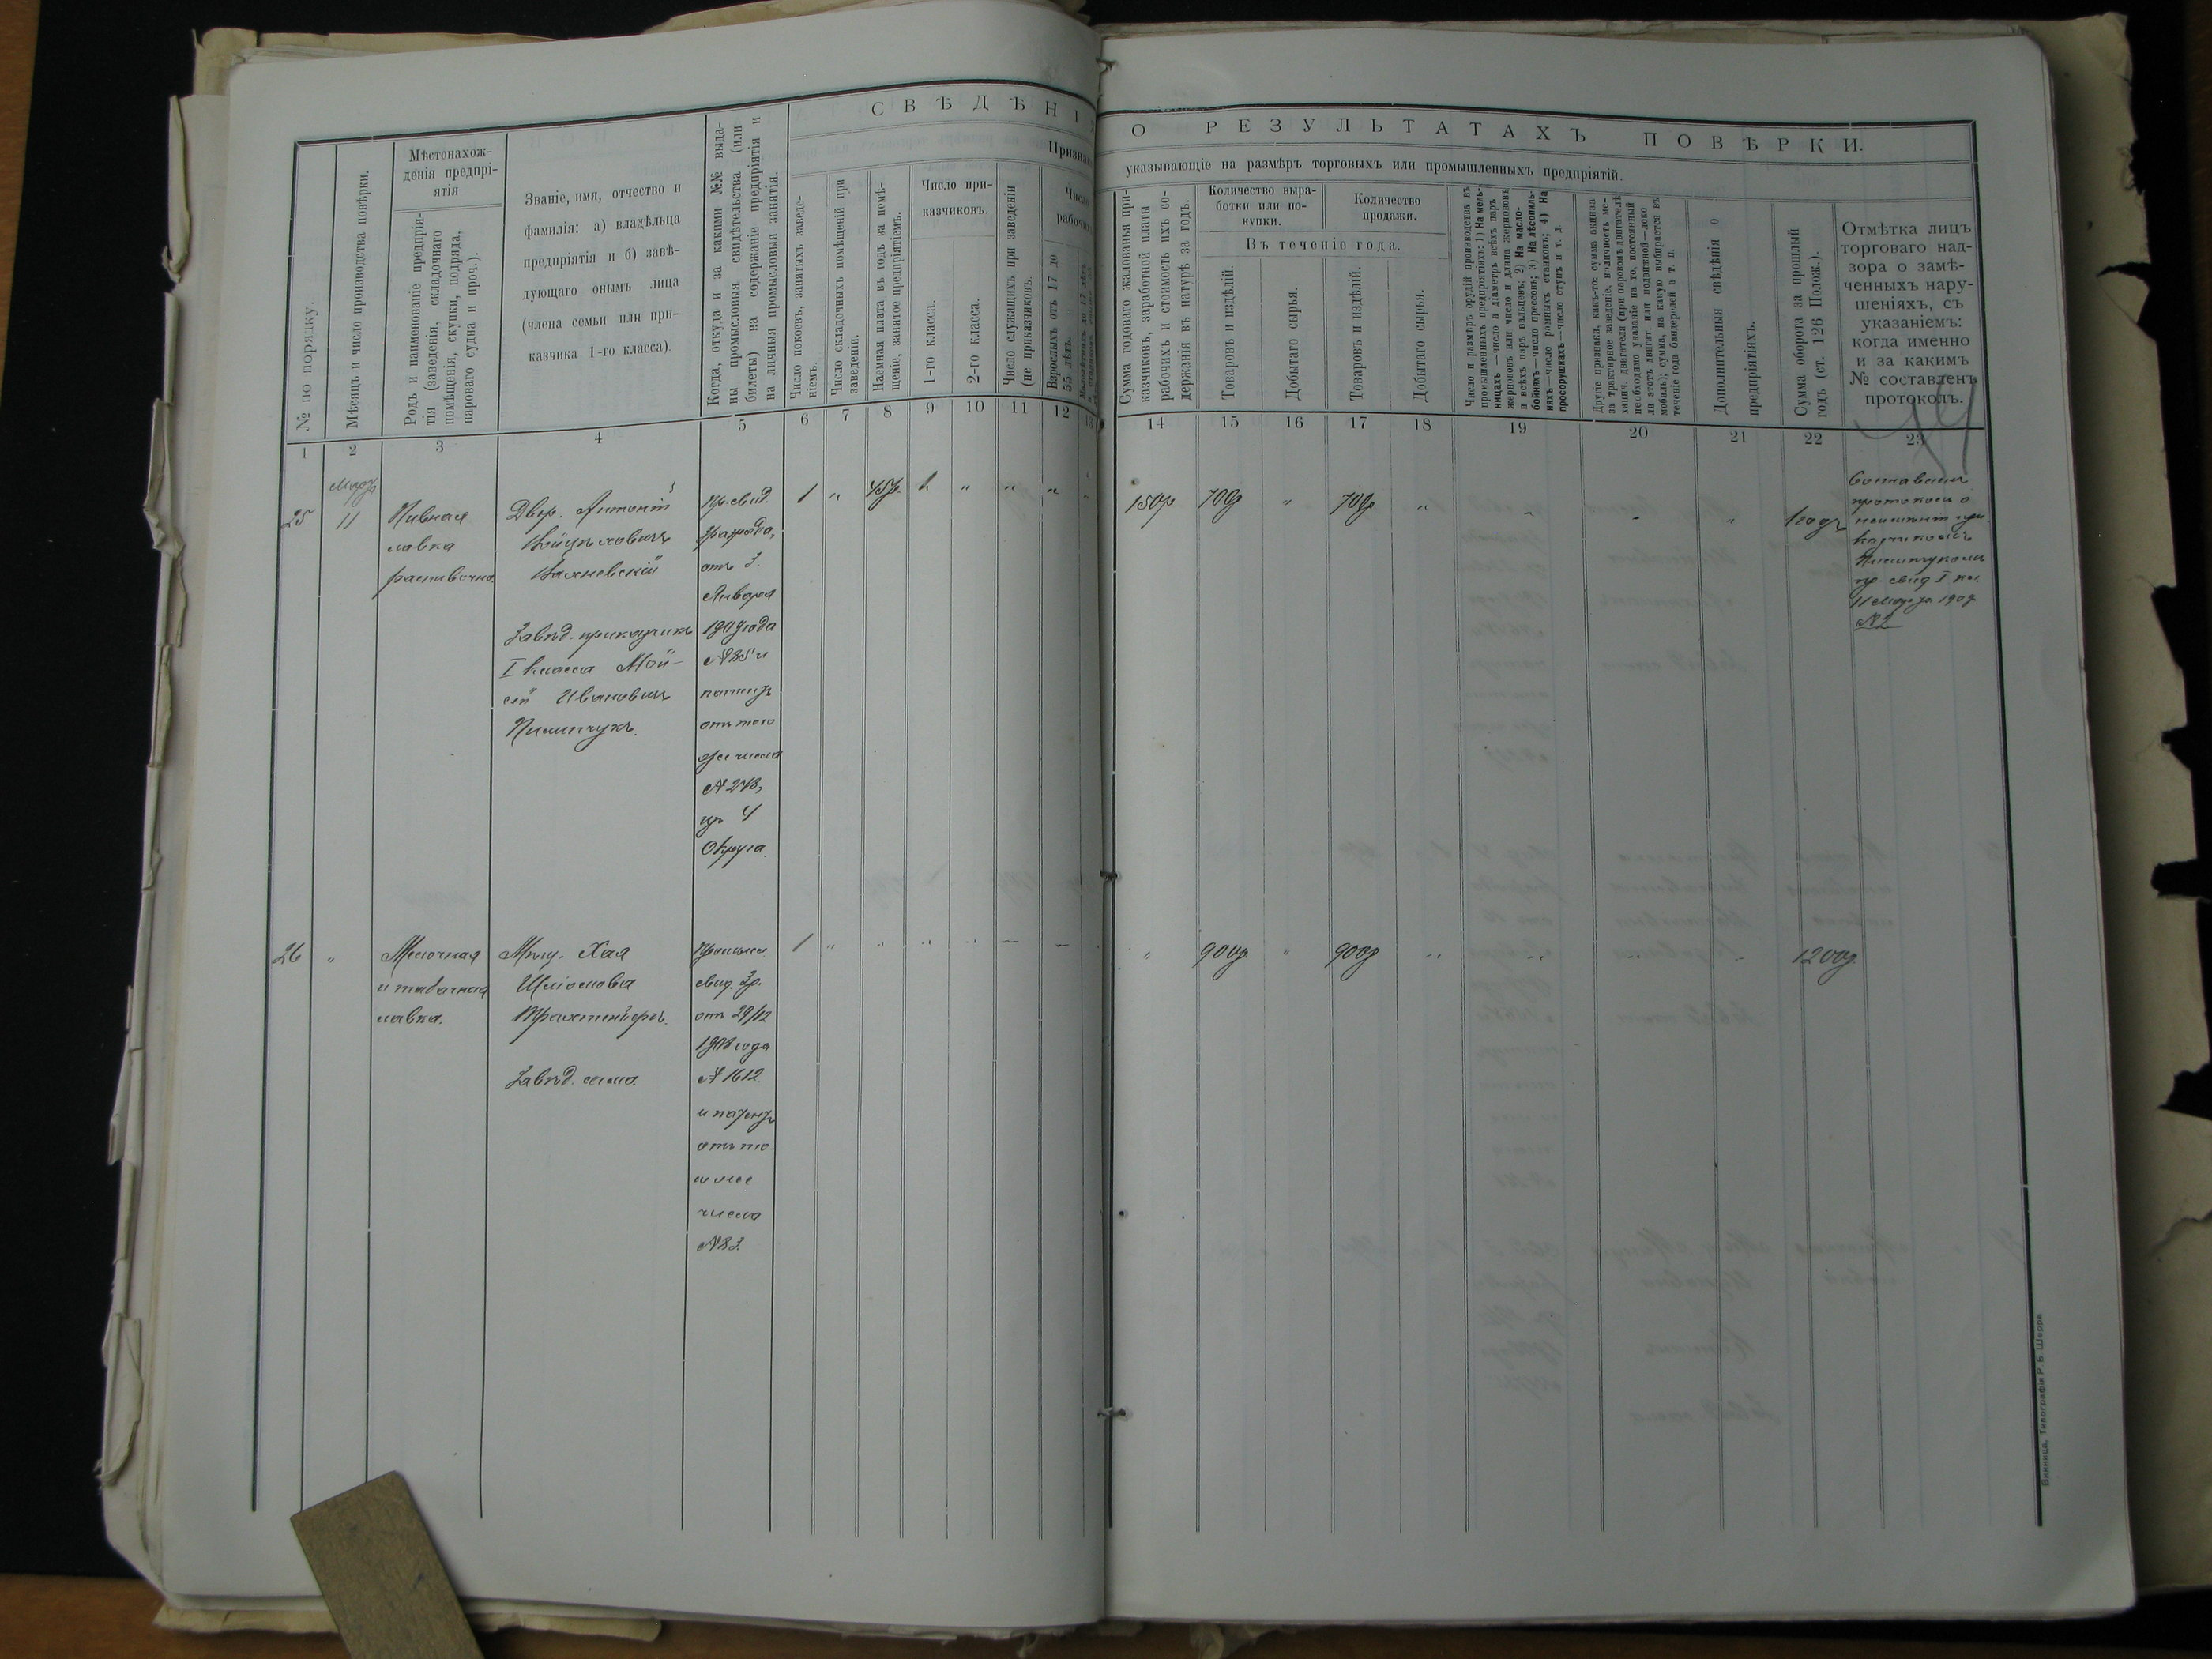 СВѢДѢНІЯ О РЕЗУЛЬТАТАХЪ ПОВѢРКИ.
Признаки, указывающіе на размѣръ торговыхъ или промышленныхъ предпріятій.
№ по порядку.
Мѣсяцъ и число производства повѣрки.
Мѣстонахож-
денія предпрі-
ятія
Родъ и наименованіе предпрія-
тія (заведенія, складочнаго
помѣщенія, скупки, подряда,
пароваго судна и проч.).
Званіе, имя, отчество и
фамилія: а) владѣльца
предпріятія и б) завѣ-
дующаго онымъ лица
(члена семьи или при-
казчика 1-го класса).
Когда, откуда и за какими №№ выда-
ны промысловыя свидѣтельства (или
билеты) на содержаніе предпріятія и
на личныя промысловыя занятія.
Число покоевъ, занятыхъ заведе-
ніемъ.
Число складочныхъ помѣщеній при
заведеніи.
Наемная плата въ годъ за помѣ-
щеніе, занятое предпріятіемъ.
Число при-
казчиковъ.
1-го класса.
2-го класса.
Число служащихъ при заведеніи
(не приказчиковъ.
Число
рабочихъ
Взрослыхъ отъ 17 до
55 лѣтъ.
Сумма годоваго жалованья при-
казчиковъ, заработной платы
рабочихъ и стоимость ихъ со-
держанія въ натурѣ за годъ.
Количество выра-
ботки или по-
купки.
Количество
продажи.
Въ теченіе года.
Товаровъ и издѣлій.
Добытаго сырья.
Товаровъ и издѣлій.
Добытаго сырья.
Число и размѣръ орудій производства въ
промышленныхъ предпріятіяхъ: 1) На мель-
ницахъ—число и діаметръ всѣхъ паръ
жернововъ или число и длина жернововъ
и всѣхъ паръ вальцевъ; 2) На масло-
бойняхъ—число прессовъ; 3) На лѣсопиль-
няхъ—число рамныхъ станковъ; 4) На
просорушкахъ—число ступъ и т. д.
Другіе признаки, какъ-то: сумма акциза
за трактирное заведеніе, наличность ме-
ханич. двигателя (при паровомъ двигателѣ
необходимо указаніе на то, постоянный
ли этотъ двигат. или подвижной—локо
мобиль); сумма, на какую выбирается въ
теченіе года бандеролей и т. п.
Дополнительныя свѣдѣнія о
предпріятіяхъ.
Сумма оборота за прошлый
годъ (ст. 126 Полож.).
Отмѣтка лицъ
торговаго над-
зора о замѣ-
ченныхъ нару-
шеніяхъ, съ
указаніемъ:
когда именно
и за какимъ
№ составленъ
протоколъ.
1 2 3 4 5 6 7 8 9 10 11 12 13 14 15 16 17 18 19 20 21 22 23
25
Мартъ
11
Пивная
лавка
распивочно
Двор. Антоній
Войцеховичъ
Завѣд. приказчикъ
I класса Мой-
сей Ивановичъ
Пилипчукъ.
Пр. свид.
3 разряда,
отъ 3
Января
1909 года
патентъ
отъ того
же числа
№ 248,
изъ 4
Округа.
1 " 45р. 1 " " "
150р 700р " 700р " " " "
Составленъ
протоколъ о
неимѣніи при-
казчикомъ
Пилипчукомъ
пр. свид. I кл.
11 Марта 1909
№ 2
26 "
Мелочная
и табачная
лавка.
Мѣщ. Хая
Шліомова
Трахтенбергъ.
Завѣд. сама.
Промысл.
свид. 3р.
отъ 29/12
1908 года
№ 1612
и патентъ
отъ то-
го же
числа
№ 83.
1 " " " " – –
" 900р " 900р " " " " 1200р.
Винница, Типографія Р. Б. Шерра